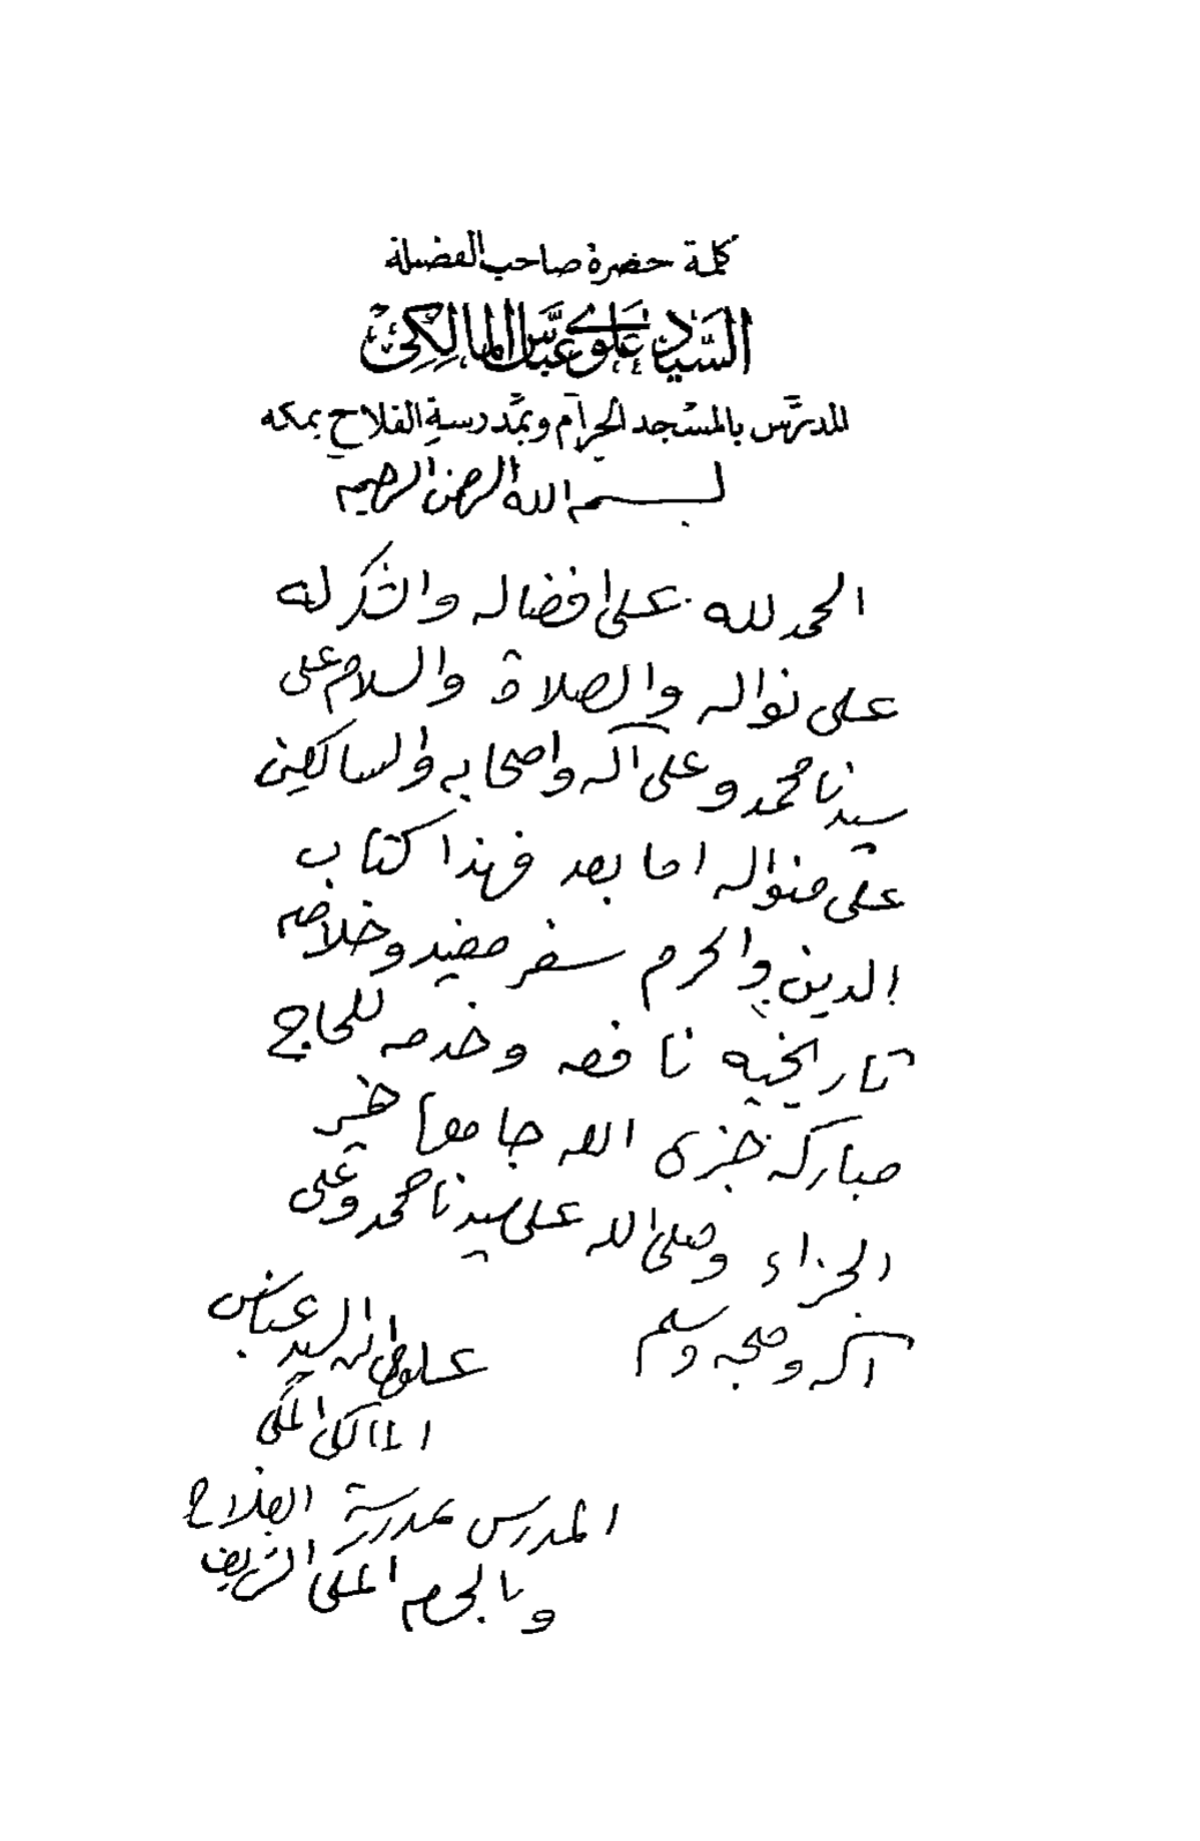 كلمة حضرة صاحب الفضيلة
السَّيِّد عَلَوي عبَّاس المالِكِيّ
المدرّس بالمسْجد الحرام وبمَدرسةِ الفلاح بمكه
بسم الله الرحمن الرحيم
الحمد لله على افضاله والشكر له
على نواله والصلاة والسلام على
سيدنا محمد وعلى آله واصحابه والسالكين
على منواله اما بعد فهذا كتاب
الدين والحرم سفر مفيد وخلاصه
تاريخية نافعه وخدمه للحاج
مباركه جزى الله جامعها خير
الجزاء وصلى الله على سيدنا محمد وعلى
آله وصحبه وسلم
علوى ابن السيد عباس
المالكى المكى
المدرس بمدرسة الفلاح
وبالحرم المكى الشريف